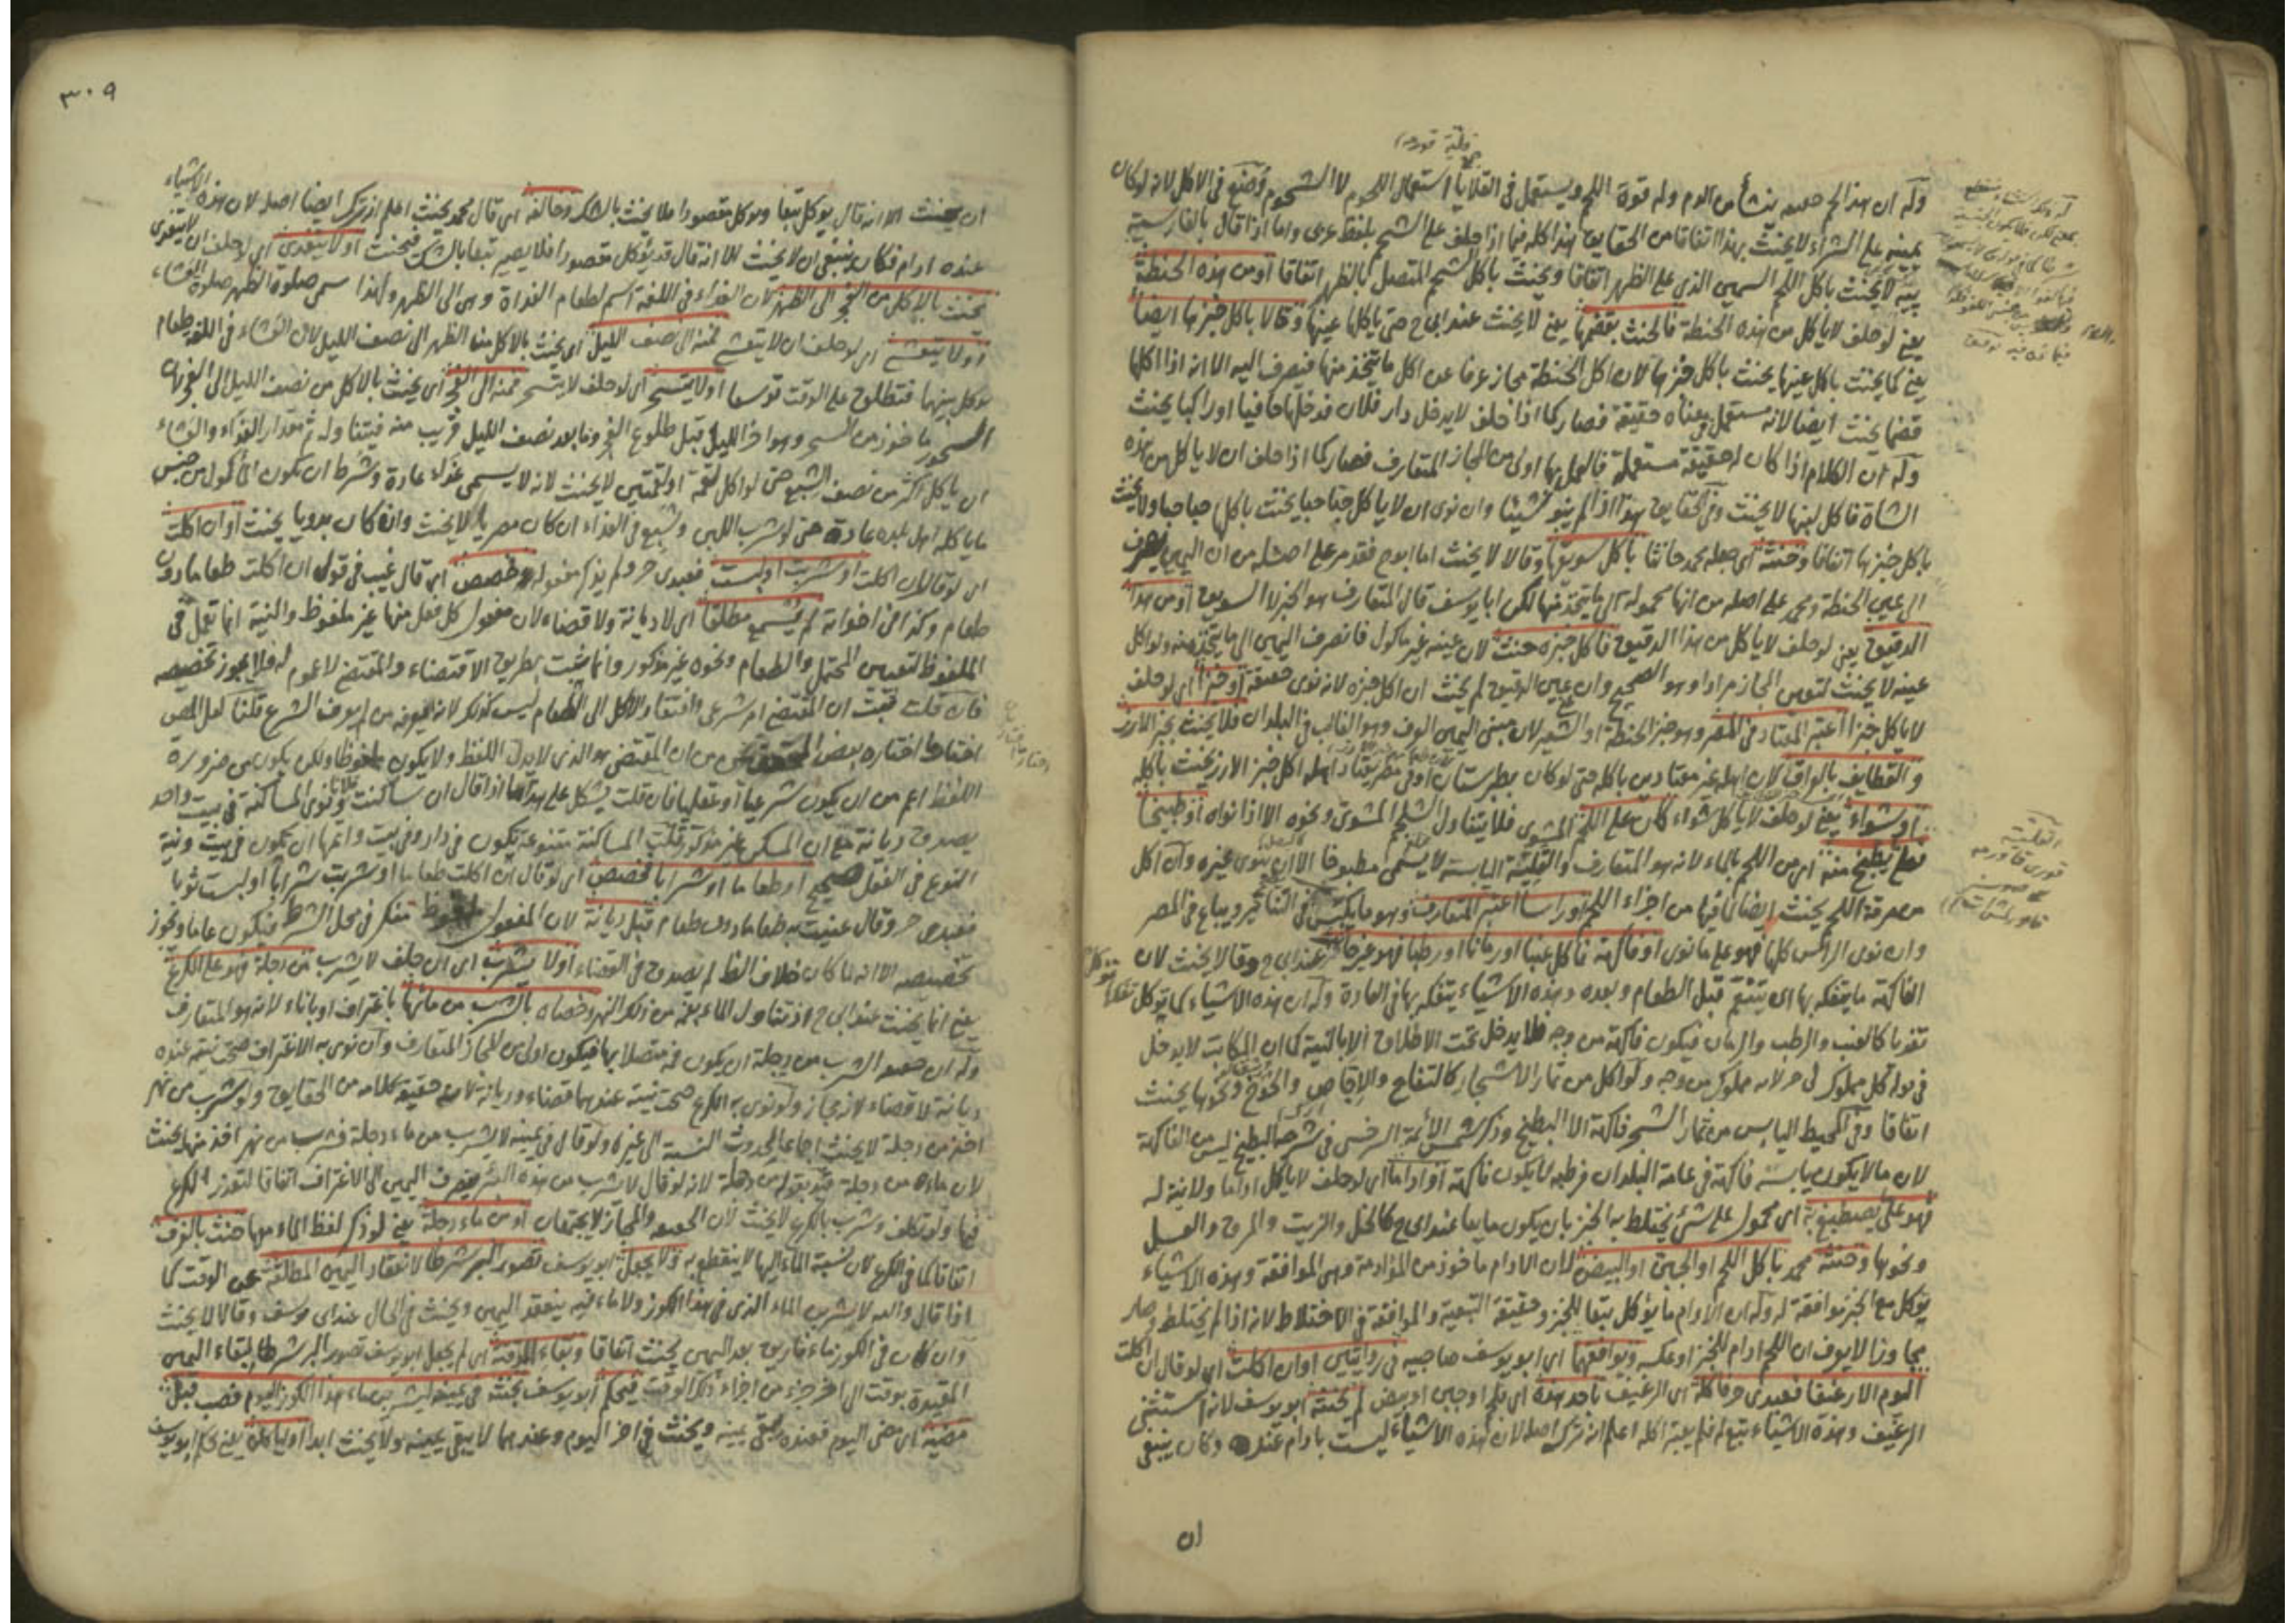 قلية قورمه
وله ان هذا لحم حقيقة ينشأ من الدم وله قوة اللحم ويستعمل في القلايا استعمال اللحوم لا الشحوم وضع في الاكل لانه لو كان
يمينه على الشراء لا يحنث بهذا اتفاقا من الحقايق هذا كله فيما اذا حلف على الشحم بلفظ عربى واما اذا قال بالفارسية
لا يحنث باكل اللحم السمين الذى على الظهر اتفاقا ويحنث باكل الشحم المتصل بالظهر اتفاقا او من هذه الحنطة
يعنى لو حلف لا ياكل من هذه الحنطة فالحنث بقضمها يعنى لا يحنث عند ابى ح حتى ياكل عينها وقالا باكل خبزها ايضا
يعنى كما يحنث باكل عينها يحنث باكل خبزها لان اكل الحنطة مجاز عرفا عن اكل ما يتخذ منها فينصرف اليه الا انه اذا اكلها
قضما يحنث ايضا لانه مستعمل في معناه حقيقة فصار كما اذا حلف لا يدخل دار فلان فدخلها حافيا او راكبا يحنث
وله ان الكلام اذا كان له حقيقة مستعملة فالعمل بها اولى من المجاز المتعارف فصار كما اذا حلف ان لا ياكل من هذه
الشاة فاكل لبنها لا يحنث وفي الحقايق هذا اذا لم ينو شيئا وان نوى ان لا ياكل حبا حبا يحنث باكلها حبا حبا ولا يحنث
باكل خبزها اتفاقا وحنثه اى جعله محمد حانثا باكل سويقها وقالا لا يحنث اما ابو ح فقد مر على اصله من ان اليمين ينصرف
الى عين الحنطة ومحمد على اصله من انها محمولة الى ما يتخذ منها لكن ابا يوسف قال المتعارف هو الخبز لا السويق او من هذا
الدقيق يعنى لو حلف لا ياكل من هذا الدقيق فاكل خبزه حنث لان عينه غير ماكول فانصرف اليمين الى ما يتخذ منه ولو اكل
عينه لا يحنث لتعين المجاز مرادا وهو الصحيح وان عين الدقيق لم يحنث ان اكل خبزه لانه نوى حقيقة او خبزا اى لو حلف
لا ياكل خبزا اعتبر المعتاد في المصر وهو خبز الحنطة او الشعير لان مبنى اليمين العرف وهو الغالب في البلدان فلا يحنث بخبز الارز
والقطايف بالعراق لان اهله غير معتادين باكله حتى لو كان بطبرستان او في مصر يعتاد اهله اكل خبز الارز يحنث باكله
او شواء يعنى لو حلف لا ياكل شواء كان على اللحم المشوى فلا يتناول الشلجم المشوى ونحوه الا اذا نواه او طبيخا
فعلى يطبخ منه اى من اللحم بالماء لانه هو المتعارف والقلية اليابسة لا يسمى مطبوخا الا ان ينوى غيره وان اكل
من مرقة اللحم يحنث ايضا لما فيها من اجزاء اللحم او راسا اعتبر المتعارف وهو ما يكبس في التنانير ويباع في المصر
وان نوى الراس كلها فهو على ما نوى او فاكهة فاكل عنبا او رمانا او رطبا فهو غير حانث عند ابى ح وقالا يحنث لان
الفاكهة ما يتفكه بها اى يتنعم قبل الطعام وبعده وهذه الاشياء يتفكه بها في العادة وله ان هذه الاشياء كما توكل تفكها توكل
تغذيا كالعنب والرطب والرمان فيكون فاكهة من وجه فلا يدخل تحت الاطلاق الا بالنية كما ان المكاتب لا يدخل
في قوله كل مملوك لى حر لانه مملوك من وجه ولو اكل من ثمار الاشجار كالتفاح والاجاص والخوخ ونحوها يحنث
اتفاقا وفي المحيط اليابس من ثمار الشجر فاكهة الا البطيخ وذكر شمس الأئمة السرخسى في شرحه البطيخ ليس من الفاكهة
لان ما لا يكون يابسه فاكهة في عامة البلدان فرطبه لا يكون فاكهة او اداما اى لو حلف لا ياكل اداما ولا نية له
فهو على ما يصطبغ به اى محمول على شئ يختلط به الخبز بان يكون مايعا عند ابى ح كالخل والزيت والمرق والعسل
ونحوها وحنثه محمد باكل اللحم او الجبن او البيض لان الادام ماخوذ من المؤادمة وهى الموافقة وهذه الاشياء
يوكل مع الخبز موافقة له وله ان الادام ما يؤكل تبعا للخبز وحقيقة التبعية والموافقة في الاختلاط لانه اذا لم يختلط وصار
مجاوزا لا يعرف ان اللحم ادام للخبز او عكسه ويوافقهما اى ابو يوسف صاحبيه في روايتين او ان اكلت اى لو قال ان اكلت
اليوم الا رغيفا فعبدى حر فاكله اى الرغيف باحد هذه اى بلحم او جبن او بيض لم يحنثه ابو يوسف لانه استثنى
الرغيف وهذه الاشياء تبع له فلم يعتبر اكله اعلم انه ترك اصله لان هذه الاشياء ليست بادام عنده وكان ينبغى
ان
٣٠٩
ان يحنث الا انه قال يوكل تبعا ويوكل مقصودا فلا يحنث بالشك وخالفه اى قال محمد يحنث اعلم انه ترك ايضا اصله لان هذه الاشياء
عنده ادام فكان ينبغى ان لا يحنث الا انه قال قد يؤكل مقصودا فلا يصير تبعا بالشك فيحنث او لا يتغدى اى لو حلف ان لا يتغدى
يحنث بالاكل من الفجر الى الظهر لان الغداء في اللغة اسم لطعام الغداة وهى الى الظهر ولهذا سمى صلوة الظهر صلوة العشاء
او لا يتعشى اى لو حلف ان لا يتعشى فمنه الى نصف الليل اى يحنث بالاكل من الظهر الى نصف الليل لان العشاء في اللغة طعام
يوكل بينهما فيطلق على الوقت توسعا او لا يتسحر اى لو حلف لا يتسحر فمنه الى الفجر اى يحنث بالاكل من نصف الليل الى الفجر لان
السحور ماخوذ من السحر وهو اخر الليل قبل طلوع الفجر وما بعد نصف الليل قريب منه فيتناوله ثم مقدار الغداء والعشاء
ان ياكل اكثر من نصف الشبع حتى لو اكل لقمة او لقمتين لا يحنث لانه لا يسمى غداء عادة وشرط ان يكون الماكول من جنس
ما ياكله اهل بلده عادة حتى لو شرب اللبن وشبع في الغداء ان كان مصريا لا يحنث وان كان بدويا يحنث او ان اكلت
اى لو قال ان اكلت او شربت او لبست فعبدى حر ولم يذكر مفعوله وخصص اى قال عنيت في قولى ان اكلت طعاما دون
طعام وكذا في اخواته لم يسمع مطلقا اى لا ديانة ولا قضاء لان مفعول كل فعل منها غير ملفوظ والنية انما تعمل في
الملفوظ لتعيين المحتمل والطعام ونحوه غير مذكور وانما يثبت بطريق الاقتضاء والمقتضى لا عموم له فلا يجوز تخصيصه
فان قلت ثبت ان المقتضى امر شرعى وافتقار الاكل الى الطعام ليس كذلك لانه يعرفه من لم يعرف الشرع قلنا لعل المص
اختار ما اختاره بعض المحققين من ان المقتضى هو الذى لا يدل اللفظ ولا يكون ملفوظا ولكن يكون من ضرورة
اللفظ اعم من ان يكون شرعيا او عقليا فان قلت يشكل على هذا ما اذا قال ان ساكنت فلانا ونوى المساكنة في بيت واحد
يصدق ديانة مع ان المسكن غير مذكور قلت المساكنة متنوعة تكون في دار وفي بيت واتمها ان تكون في بيت ونية
النوع في الفعل صحيح او طعاما او شرابا فخصص اى لو قال ان اكلت طعاما او شربت شرابا او لبست ثوبا
فعبدى حر وقال عنيت به طعاما دون طعام قبل ديانة لان المفعول ملفوظ منكر في محل الشرط فيكون عاما ويجوز
تخصيصه الا انه لما كان خلاف الظ لم يصدق في القضاء او لا يشرب اى ان حلف لا يشرب من دجلة فهو على الكرع
يعنى انما يحنث عند ابى ح اذ تناول الماء بفمه من ذلك النهر وخصاه بالشرب من مائها باغتراف او باناء لانه هو المتعارف
وله ان حقيقة الشرب من دجلة ان يكون فمه متصلا بها فيكون اولى من المجاز المتعارف وان نوى به الاغتراف صحت نيته عنده
ديانة لا قضاء لانه مجاز ولو نوى به الكرع صحت نيته عندهما قضاء وديانة لانه حقيقة كلامه من الحقايق ولو شرب من نهر
اخذ من دجلة لا يحنث اجماعا لحدوث النسبة الى غيره ولو قال في يمينه لا يشرب من ماء دجلة فشرب من نهر اخذ منها يحنث
لان ماءه من دجلة قيد بقوله من دجلة لانه لو قال لا يشرب من هذه البئر ينصرف اليمين الى الاغتراف اتفاقا لتعذر الكرع
فيها ولو تكلف وشرب بالكرع لا يحنث لان الحقيقة والمجاز لا يجتمعان او من ماء دجلة يعنى لو ذكر لفظ الماء فيها حنث بالغرف
اتفاقا كما في الكرع لان نسبة الماء اليها لا ينقطع به ولا يجعل ابو يوسف تصور البر شرطا لانعقاد اليمين المطلقة عن الوقت كما
اذا قال والله لاشربن الماء الذى في هذا الكوز ولا ماء فيه ينعقد اليمين ويحنث في الحال عند ابى يوسف وقالا لا يحنث
وان كان في الكوز ماء فاريق بعد اليمين يحنث اتفاقا وبقاء الموقتة اى لم يجعل ابو يوسف تصور البر شرطا لبقاء اليمين
المقيدة بوقت الى اخر جزء من اجزاء ذلك الوقت فيحكم ابو يوسف بحنثه في يمينه ليشربن ماء هذا الكوز اليوم فصب قبل
مضيه اى مضى اليوم فعنده يبقى يمينه ويحنث في اخر اليوم وعندهما لا يبقى يمينه ولا يحنث ابدا او لياكلن يعنى حكم ابو يوسف